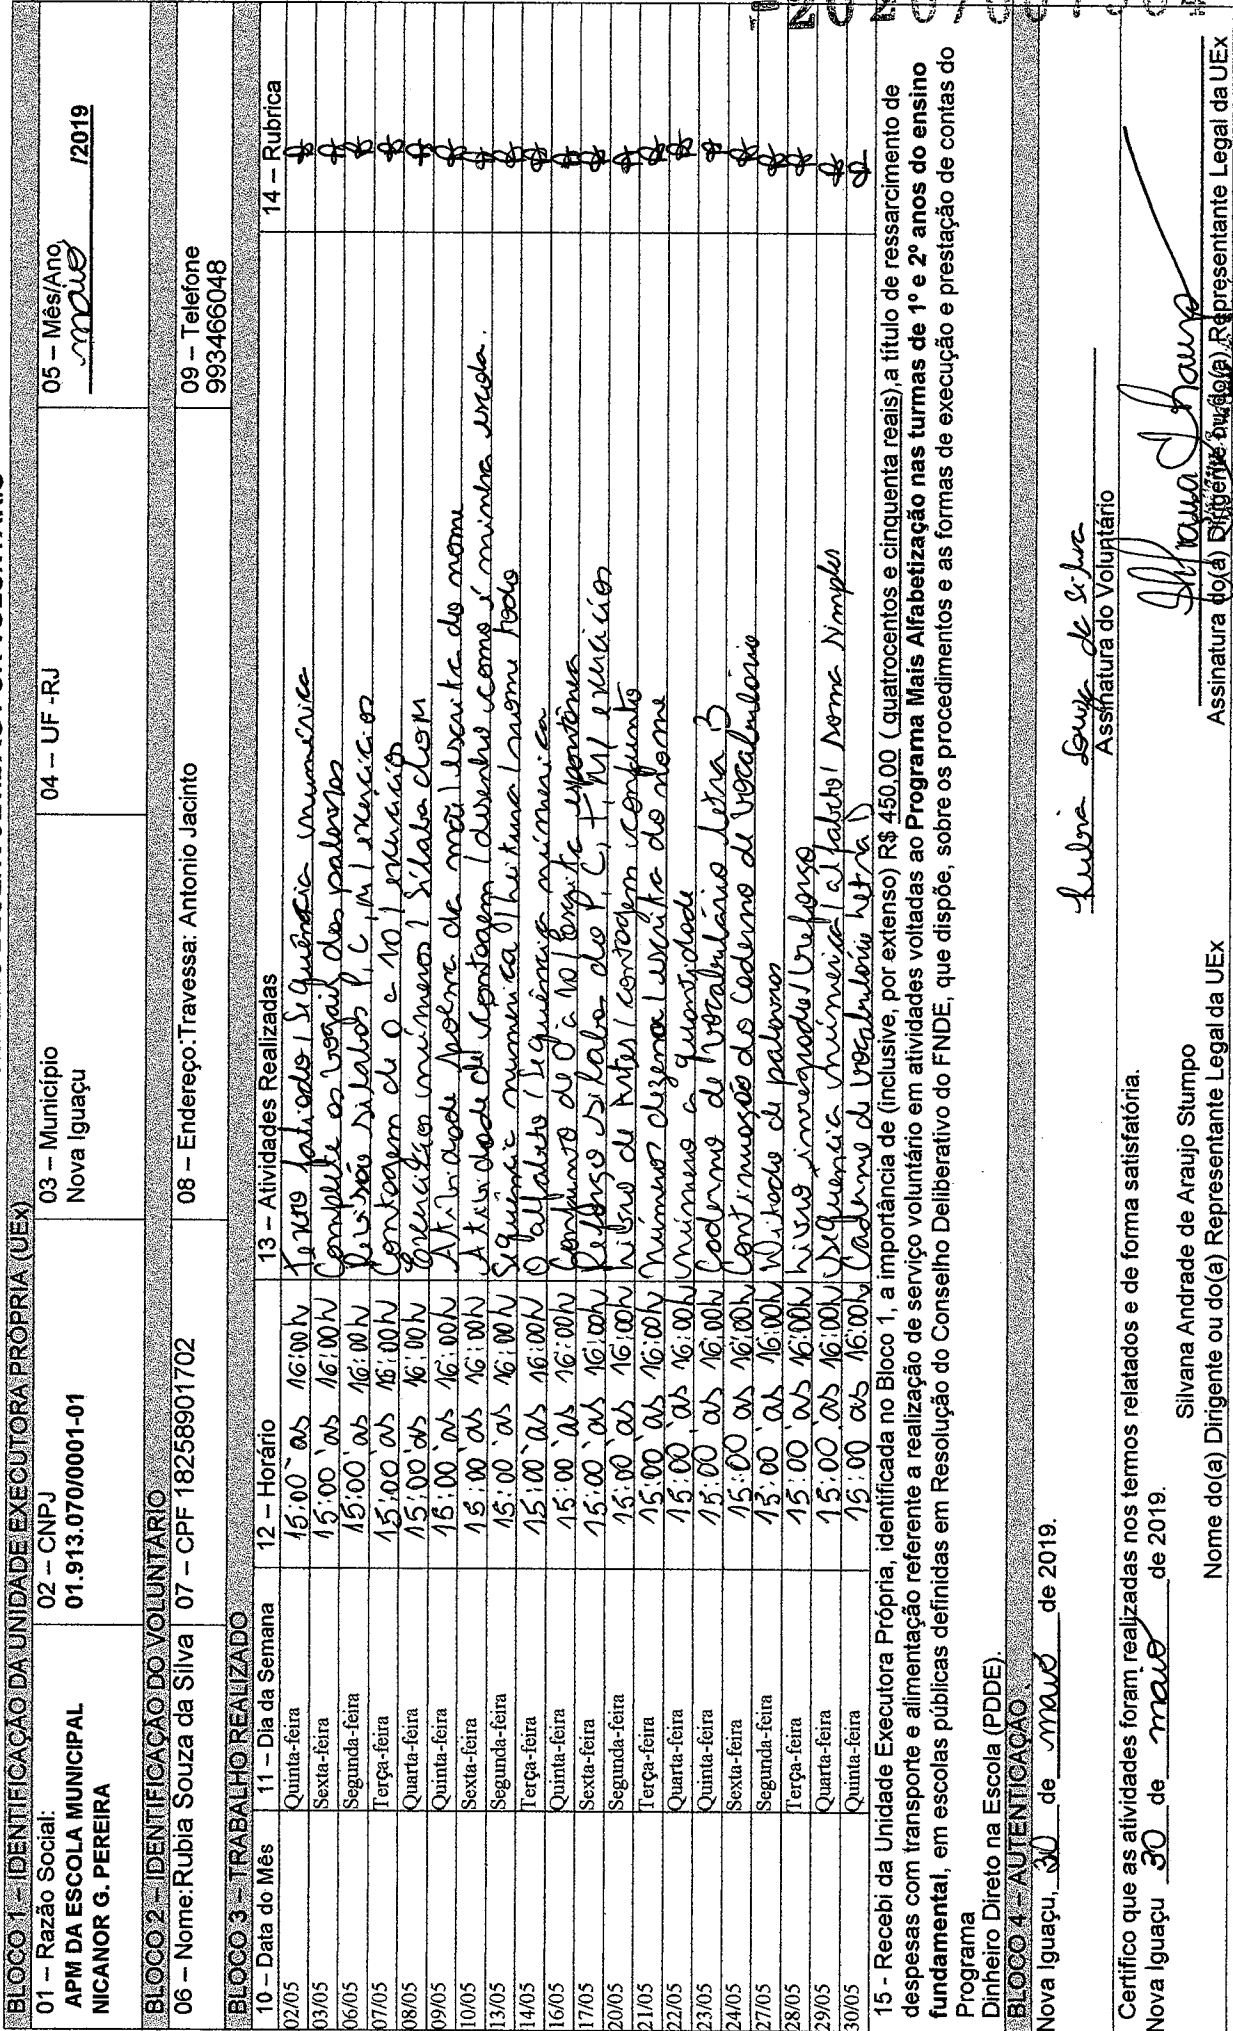 BLOCO 1 – IDENTIFICAÇÃO DA UNIDADE EXECUTORA PRÓPRIA (UEx)
01 – Razão Social:
APM DA ESCOLA MUNICIPAL
NICANOR G. PEREIRA
02 – CNPJ
01.913.070/0001-01
03 – Município
Nova Iguaçu
04 – UF -RJ
05 – Mês/Ano
maio /2019
BLOCO 2 – IDENTIFICAÇÃO DO VOLUNTÁRIO
06 – Nome:Rubia Souza da Silva
07 – CPF 18258901702
08 – Endereço:Travessa: Antonio Jacinto
09 – Telefone
993466048
BLOCO 3 – TRABALHO REALIZADO
10 – Data do Mês 11 – Dia da Semana 12 – Horário 13 – Atividades Realizadas 14 – Rubrica
02/05 Quinta-feira 15:00 às 16:00h Texto fatiado / Sequência numérica
03/05 Sexta-feira 15:00 às 16:00h Complete as vogais das palavras
06/05 Segunda-feira 15:00 às 16:00h Revisão silabas P, C, M / exercicios
07/05 Terça-feira 15:00 às 16:00h Contagem de 0 a 10 / exercicio
08/05 Quarta-feira 15:00 às 16:00h Exercitios números / Silaba do M
09/05 Quinta-feira 15:00 às 16:00h Atividade poema da mãe / escrita do nome
10/05 Sexta-feira 15:00 às 16:00h Atividade de contagem / desenho como é minha escola.
13/05 Segunda-feira 15:00 às 16:00h Sequência numerica / Leitura / nome todo
14/05 Terça-feira 15:00 às 16:00h O alfabeto / Sequência númerica
16/05 Quinta-feira 15:00 às 16:00h Conjunto de 0 à 10 / Escrita espontânea
17/05 Sexta-feira 15:00 às 16:00h Reforço silaba do P, C, T, M / exercicios
20/05 Segunda-feira 15:00 às 16:00h Livro de Artes / contagem conjunto
21/05 Terça-feira 15:00 às 16:00h Número dezena / escrita do nome
22/05 Quarta-feira 15:00 às 16:00h número a quantidade
23/05 Quinta-feira 15:00 às 16:00h Caderno de vocabulário letra B
24/05 Sexta-feira 15:00 às 16:00h Continuação do Caderno de Vocabulário
27/05 Segunda-feira 15:00 às 16:00h Ditado de palavras
28/05 Terça-feira 15:00 às 16:00h Livro integrado / reforço
29/05 Quarta-feira 15:00 às 16:00h Sequencia númerica / alfabeto / soma simples
30/05 Quinta-feira 15:00 as 16:00h Caderno de vocabulário letra D
15 - Recebi da Unidade Executora Própria, identificada no Bloco 1, a importância de (inclusive, por extenso) R$ 450,00 ( quatrocentos e cinquenta reais),a título de ressarcimento de
despesas com transporte e alimentação referente a realização de serviço voluntário em atividades voltadas ao Programa Mais Alfabetização nas turmas de 1º e 2º anos do ensino
fundamental, em escolas públicas definidas em Resolução do Conselho Deliberativo do FNDE, que dispõe, sobre os procedimentos e as formas de execução e prestação de contas do
Programa
Dinheiro Direto na Escola (PDDE).
BLOCO 4 – AUTENTICAÇÃO
Nova Iguaçu, 30 de maio de 2019.
Souza da Silva
Assinatura do Voluntário
Certifico que as atividades foram realizadas nos temos relatados e de forma satisfatória.
Nova Iguaçu 30 de maio de 2019.
Silvana Andrade de Araujo Stumpo
Nome do(a) Dirigente ou do(a) Representante Legal da UEx
Assinatura do(a) Dirigente ou do(a) Representante Legal da UEx